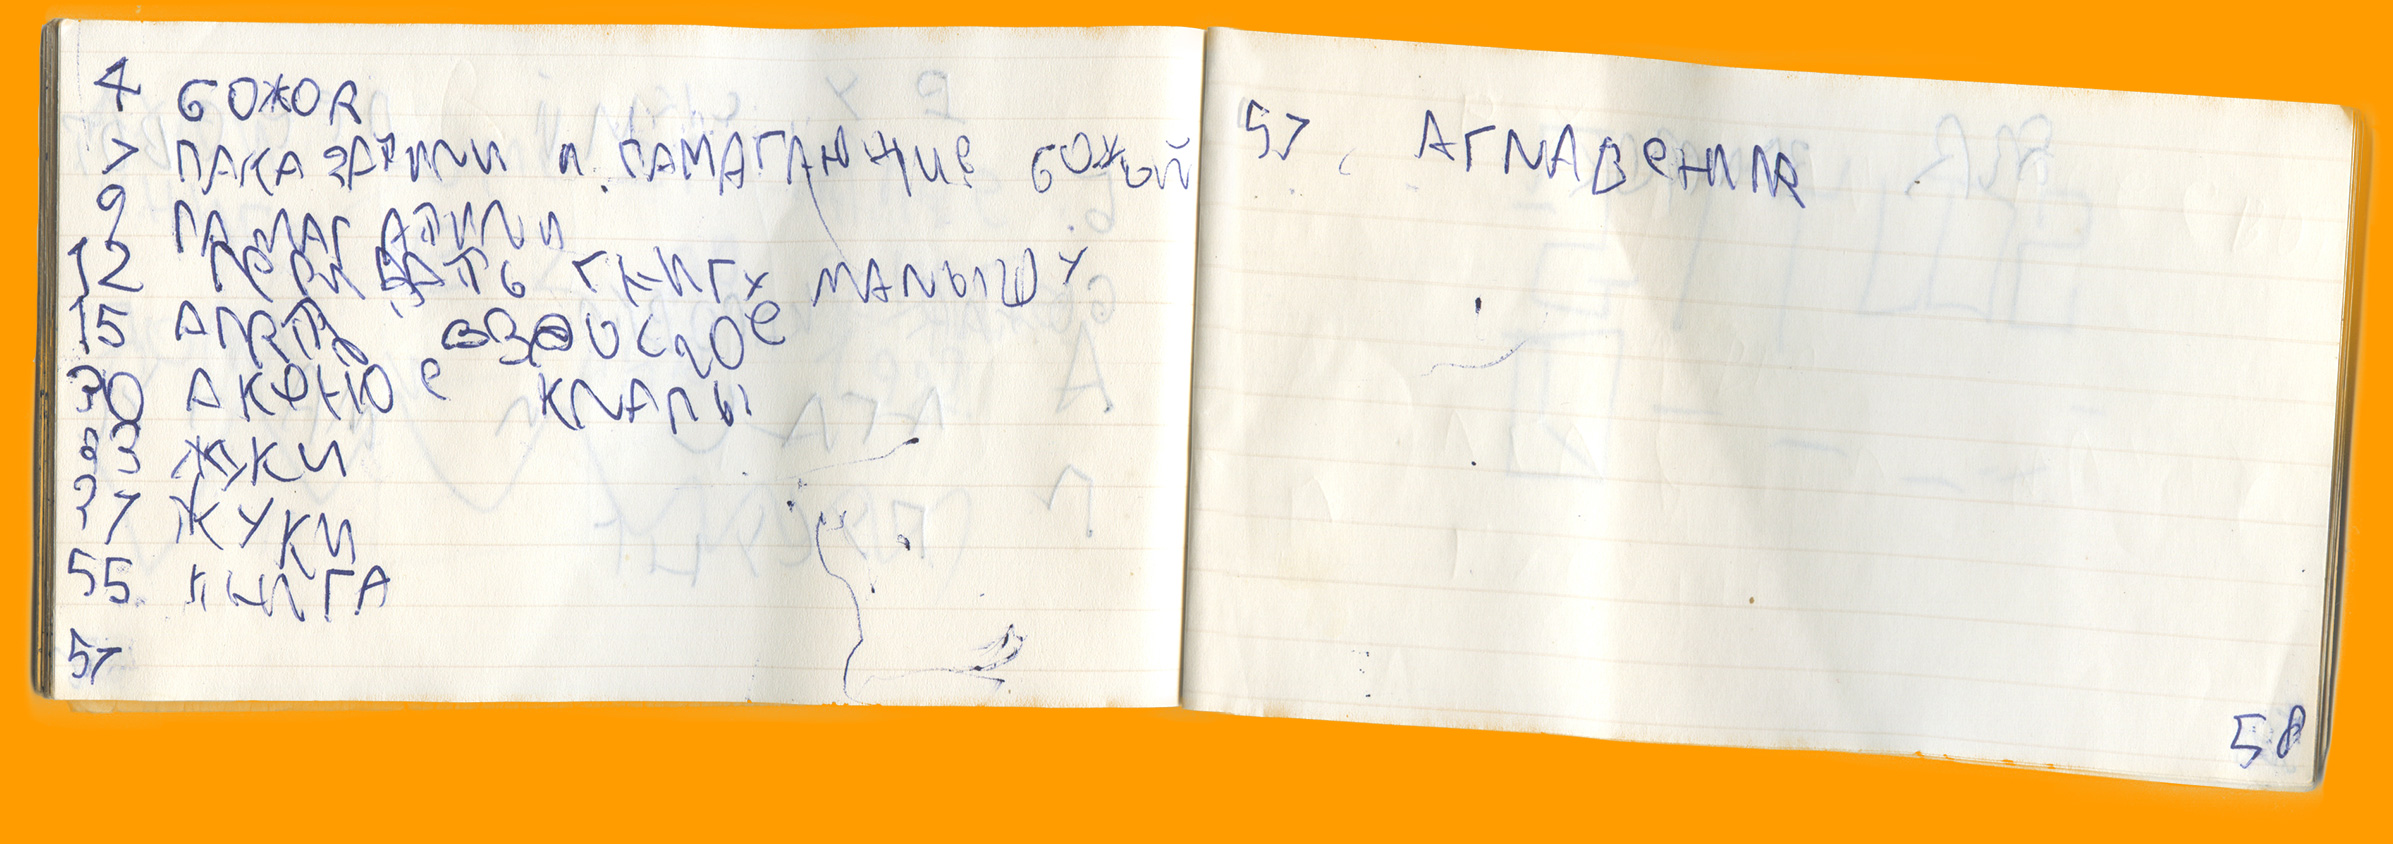 4 БОЖОЯ
7 ПАКАЗАТИЛИ И ПАМАГАЮЩИЕ БОЖЫЙ
9 ПАМАГАТИЛИ
12 ПЕРИДАТЬ ГНИГУ МАЛЫШУ
15 АПЯТЬ
30 АКФНЮЕ КЛАПЫ
33 ЖУКИ
37 ЖУКИ
55 КНИГА
57
57 АГЛАВЕНИЯ
58